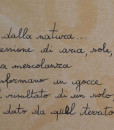 dalla natura...
essione di aria, sole,
a mescolanza
sformano in gocce
l risultato di un solo
dato da quel terreno